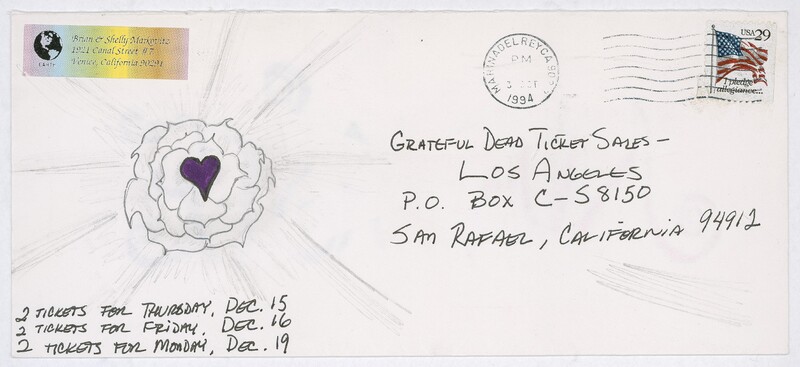 Brian & Shelly Markovitz
1921 Canal Street #7
Venice, California 90291
EARTH
MARINA DEL REY CA
PM
1994
USA 29
I pledge
allegiance...
GRATEFUL DEAD TICKET SALES -
LOS ANGELES
P.O. BOX C-S8150
SAN RAFAEL, CALIFORNIA 94912
2 TICKETS FOR THURSDAY, DEC. 15
2 TICKETS FOR FRIDAY, DEC. 16
2 TICKETS FOR MONDAY, DEC. 19